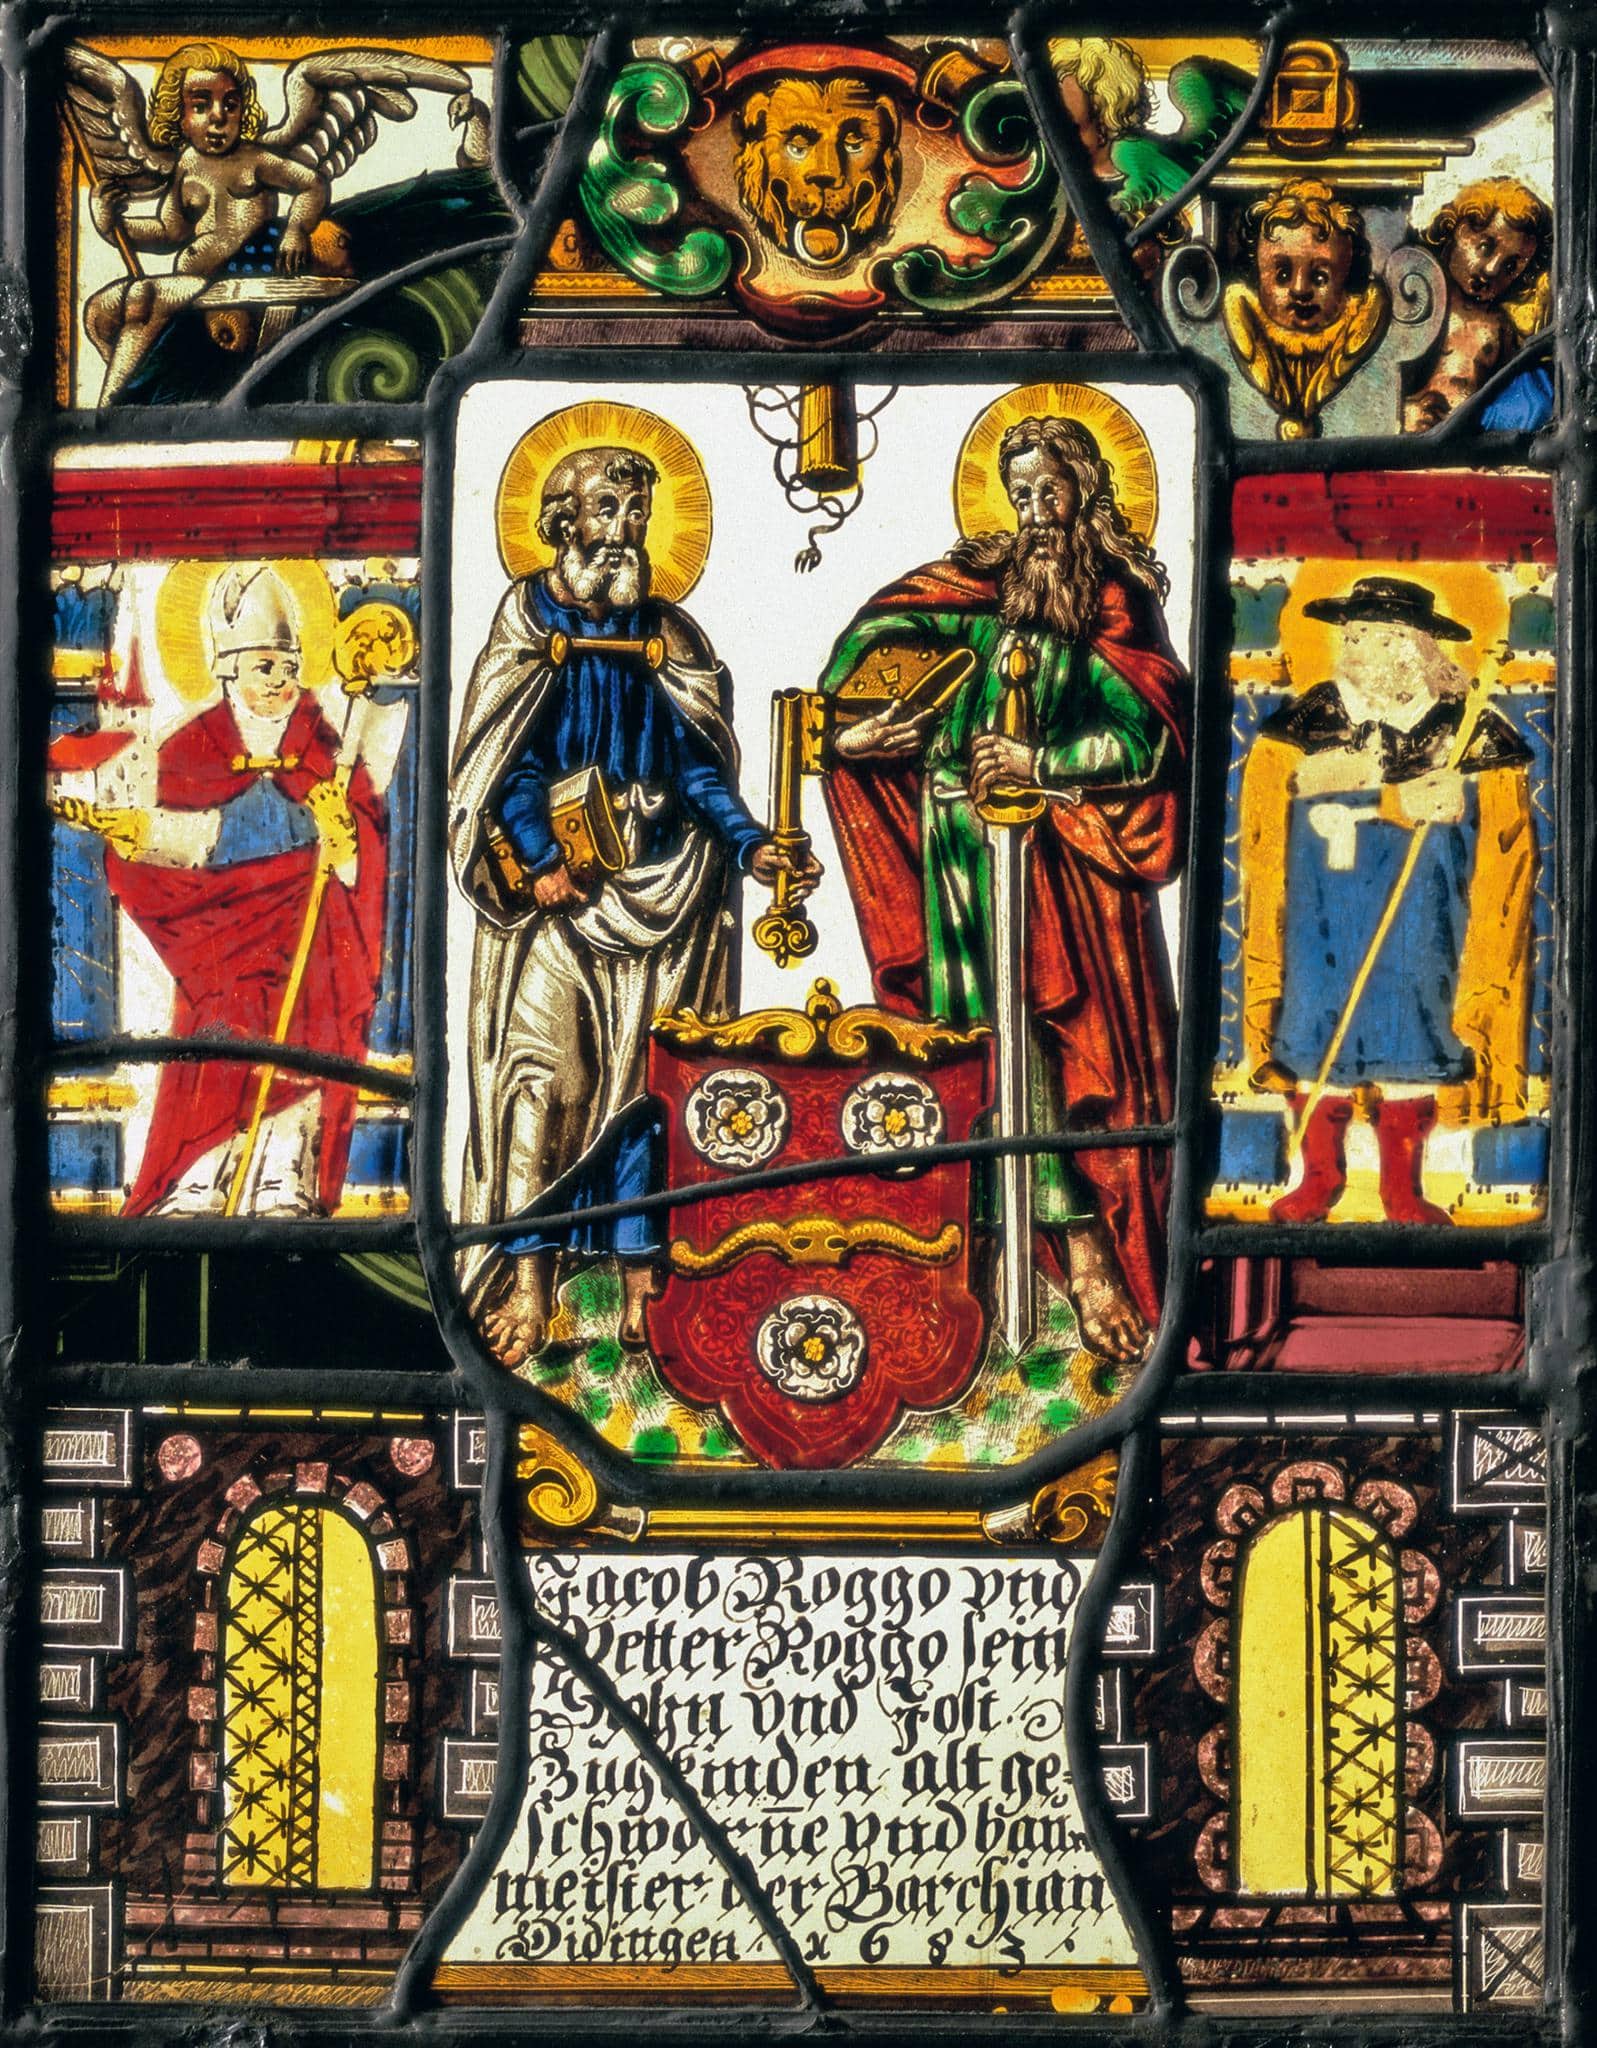 Jacob Roggo vnd
Petter Roggo sein
Sohn vnd Jost
Zugkinden alt ge-
schworne vnd bau-
meister der Barchian
Didingen 1683